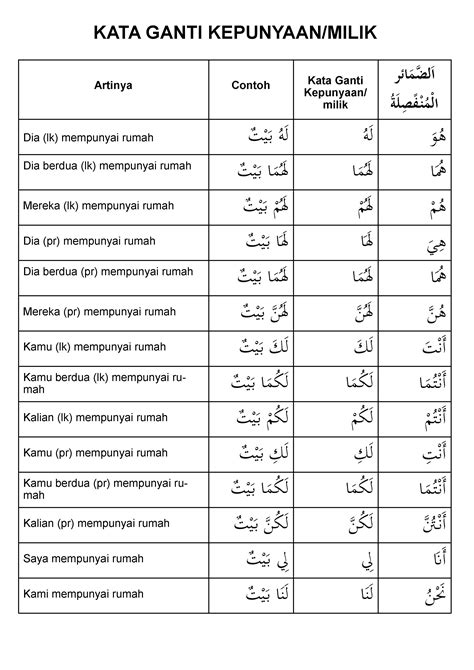 KATA GANTI KEPUNYAAN/MILIK
Artinya
Contoh
Kata Ganti
Kepunyaan/
milik
اَلضَّمَائر
الْمُنْفَصِلَةُ
Dia (lk) mempunyai rumah لَهُ بَيْتٌ لَهُ هُوَ
Dia berdua (lk) mempunyai rumah لَهُمَا بَيْتٌ لَهُمَا هُمَا
Mereka (lk) mempunyai rumah لَهُمْ بَيْتٌ لَهُمْ هُمْ
Dia (pr) mempunyai rumah لَهَا بَيْتٌ لَهَا هِيَ
Dia berdua (pr) mempunyai rumah لَهُمَا بَيْتٌ لَهُمَا هُمَا
Mereka (pr) mempunyai rumah لَهُنَّ بَيْتٌ لَهُنَّ هُنَّ
Kamu (lk) mempunyai rumah لَكَ بَيْتٌ لَكَ أَنْتَ
Kamu berdua (lk) mempunyai ru-
mah لَكُمَا بَيْتٌ لَكُمَا أَنْتُمَا
Kalian (lk) mempunyai rumah لَكُمْ بَيْتٌ لَكُمْ أَنْتُمْ
Kamu (pr) mempunyai rumah لَكِ بَيْتٌ لَكِ أَنْتِ
Kamu berdua (pr) mempunyai ru-
mah لَكُمَا بَيْتٌ لَكُمَا أَنْتُمَا
Kalian (pr) mempunyai rumah لَكُنَّ بَيْتٌ لَكُنَّ أَنْتُنَّ
Saya mempunyai rumah لِي بَيْتٌ لِي أَنَا
Kami mempunyai rumah لَنَا بَيْتٌ لَنَا نَحْنُ